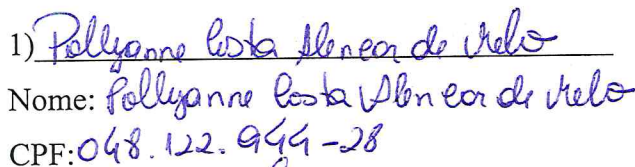 1) Pollyanne Costa Alencar de Melo
Nome: Pollyanne Costa Alencar de Melo
CPF: 048.122.944-28